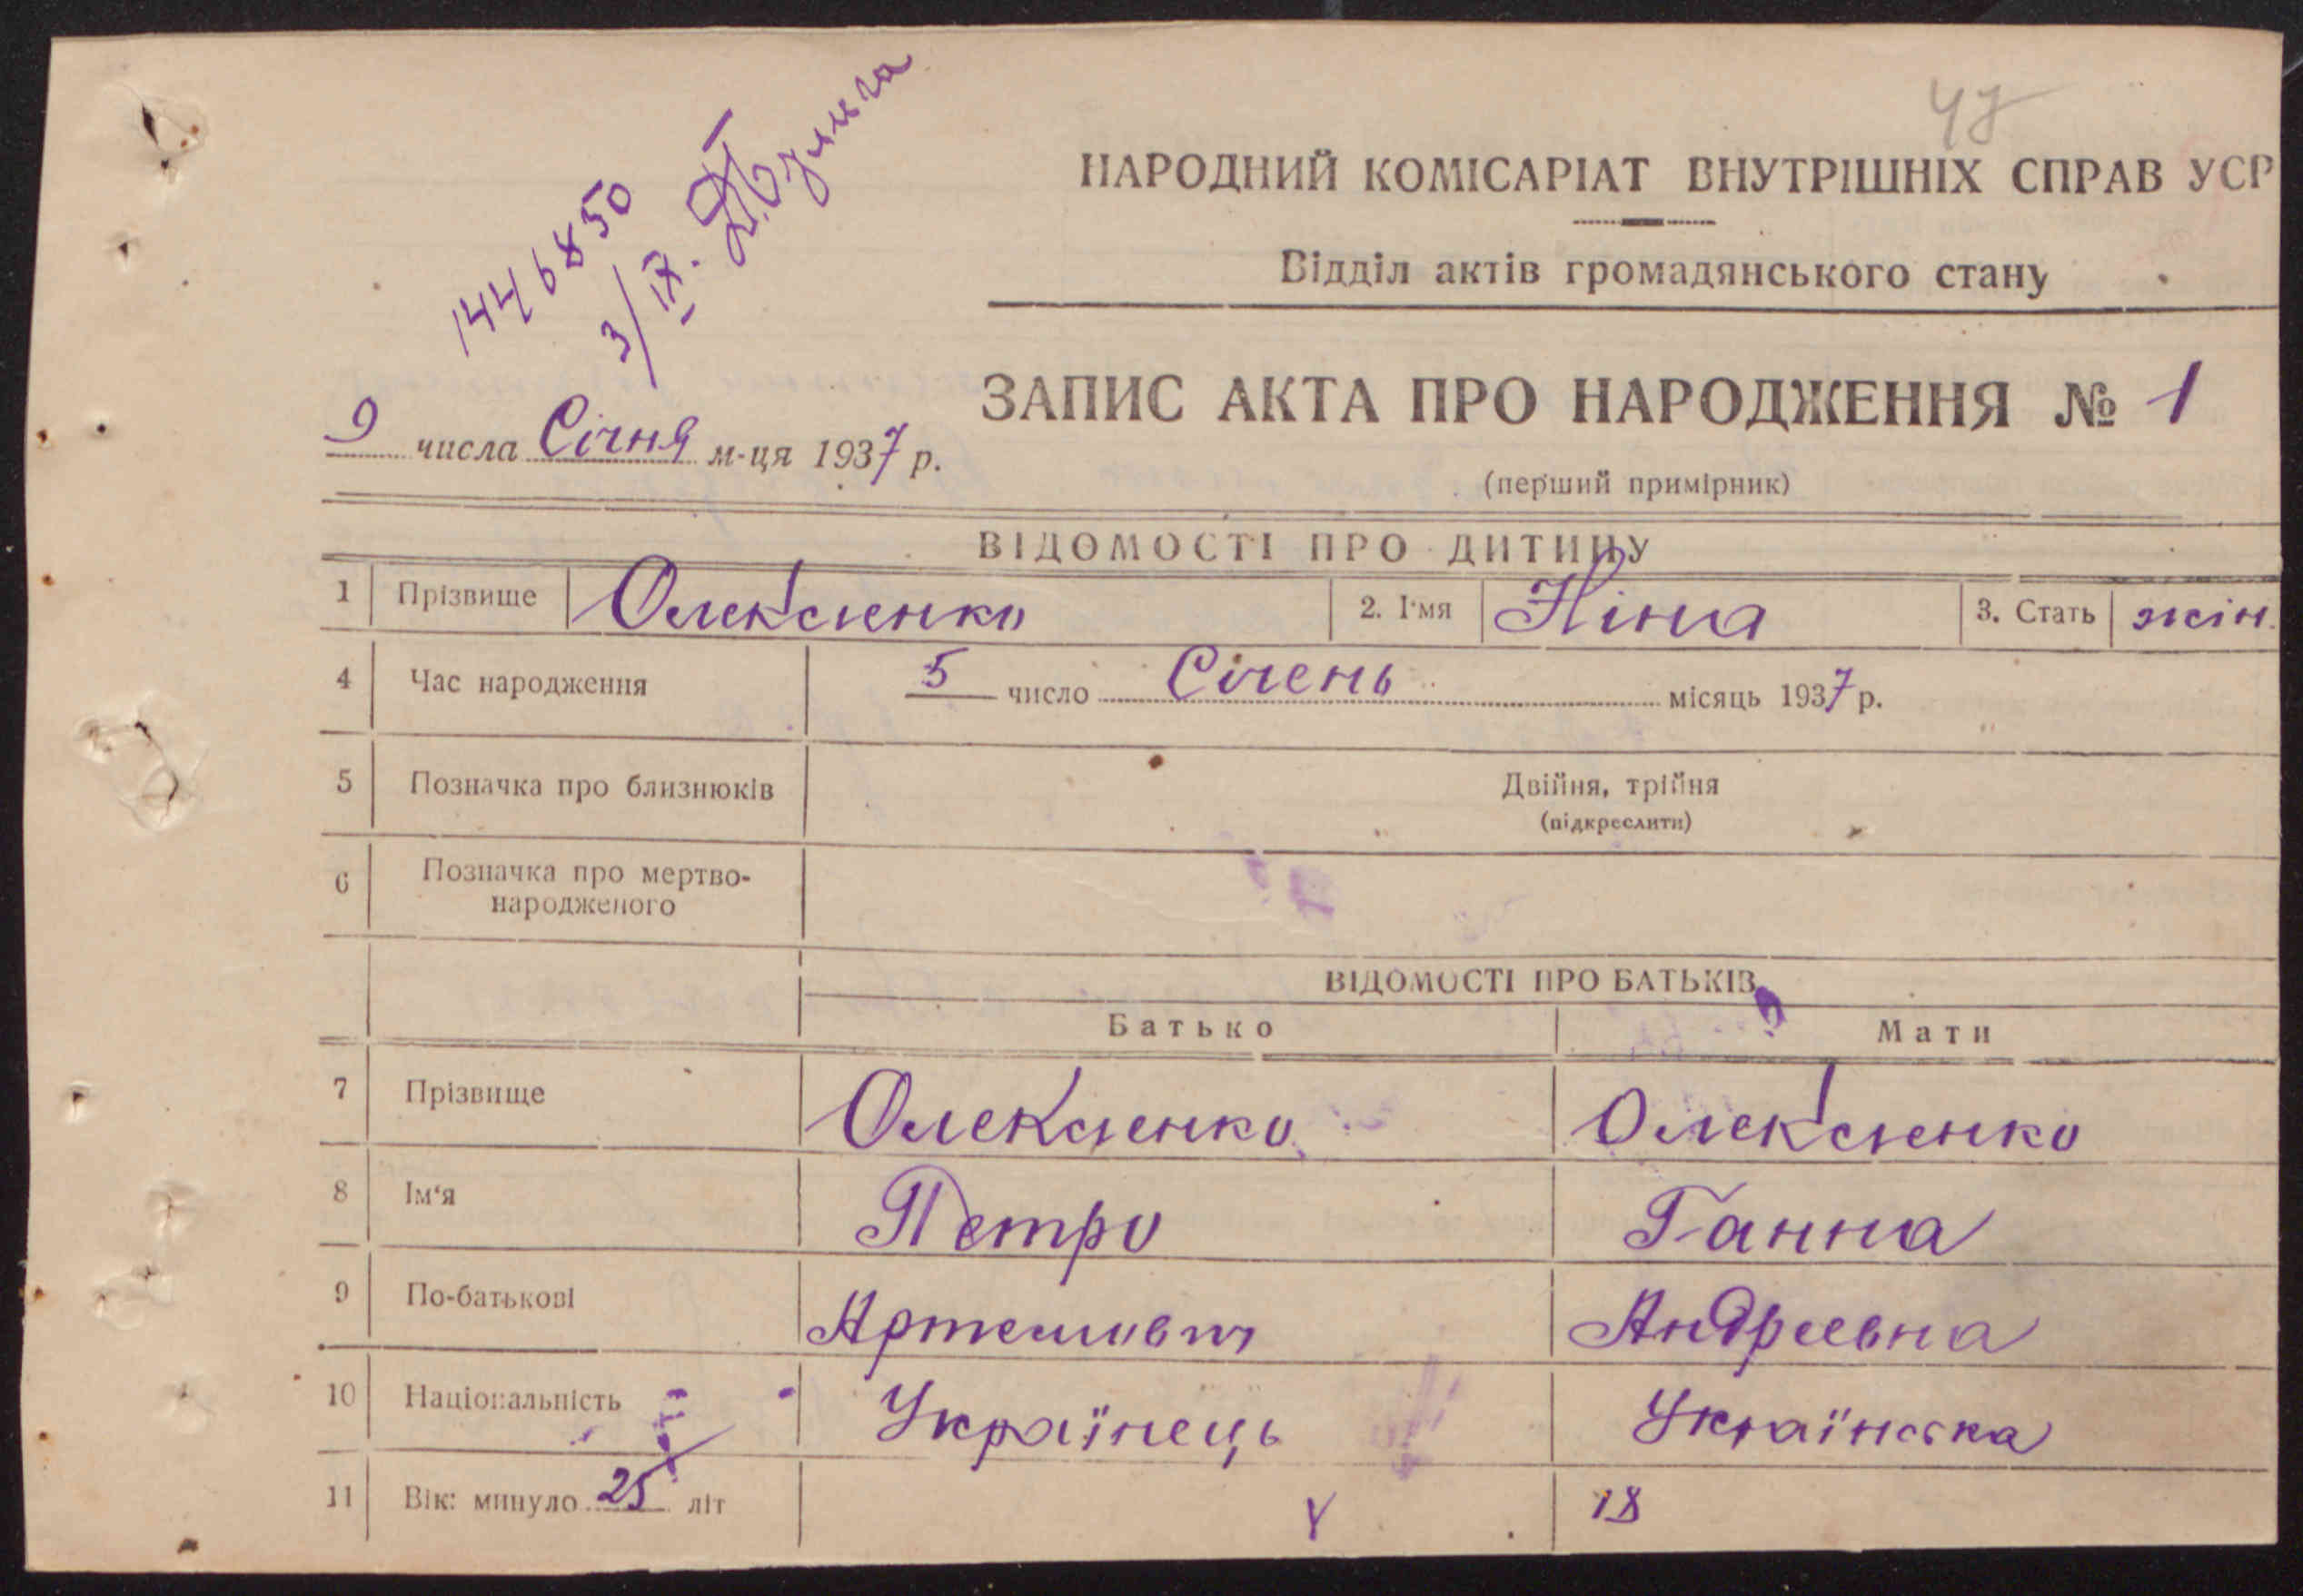 1446850
3/IX.
НАРОДНИЙ КОМІСАРІАТ ВНУТРІШНІХ СПРАВ УСР
Відділ актів громадянського стану
ЗАПИС АКТА ПРО НАРОДЖЕННЯ № 1
9 числа Січня м-ця 1937 р.
(перший примірник)
ВІДОМОСТІ ПРО ДИТИНУ
1 Прізвище Олексієнко 2. І'мя Ніна 3. Стать жін.
4 Час народження 5 число Січень місяць 1937 р.
5 Позначка про близнюків Двійня, трійня
(підкреслити)
6 Позначка про мертво-
народженого
ВІДОМОСТІ ПРО БАТЬКІВ
Батько Мати
7 Прізвище Олексієнко Олексієнко
8 Ім'я Петро Ганна
9 По-батькові Артемович Андреевна
10 Національність Українець Українська
11 Вік: минуло 25 літ 18